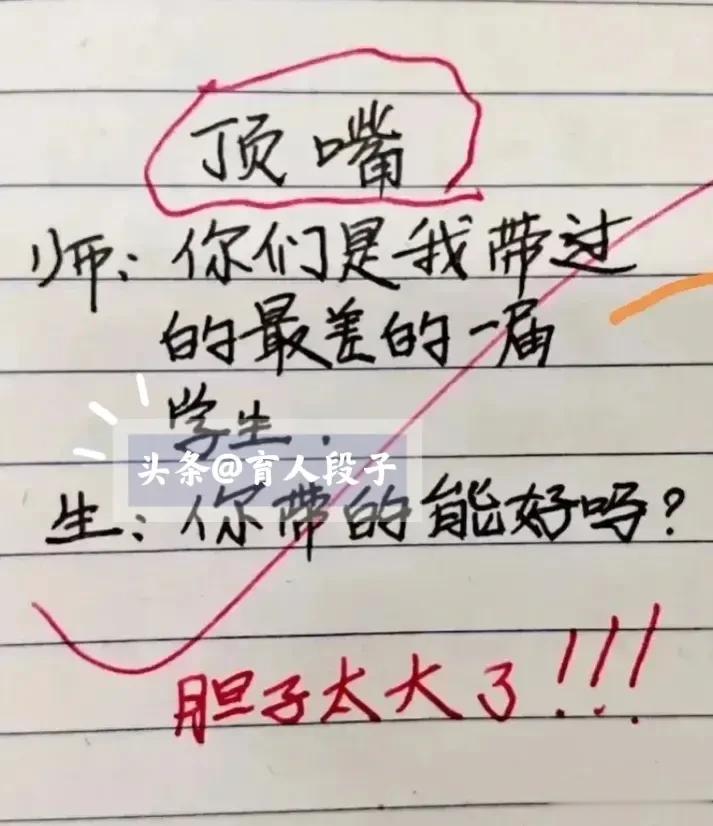 顶嘴
师：你们是我带过
的最差的一届
学生．
头条@育人段子
生：你带的能好吗？
胆子太大了!!!